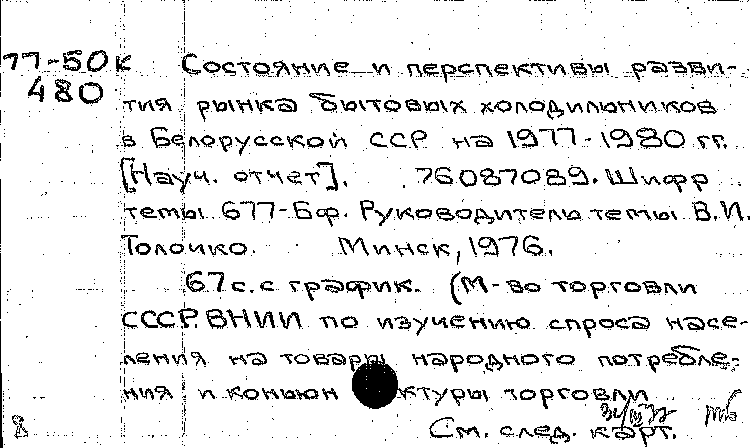 77-50к Состояние и перспективы разви-
480 тия рынка бытовых холодильников
в Белорусской ССР на 1977-1980 гг.
[Науч. отчет]. 76087089. Шифр
темы 677-Бф. Руководитель темы В.И.
Толочко. Минск, 1976.
67 с. с график. (М-во торговли
СССР. ВНИИ по изучению спроса насе-
ления на товары народного потребле-
ния и конъюн ктуры торговли
См. след. карт.
8